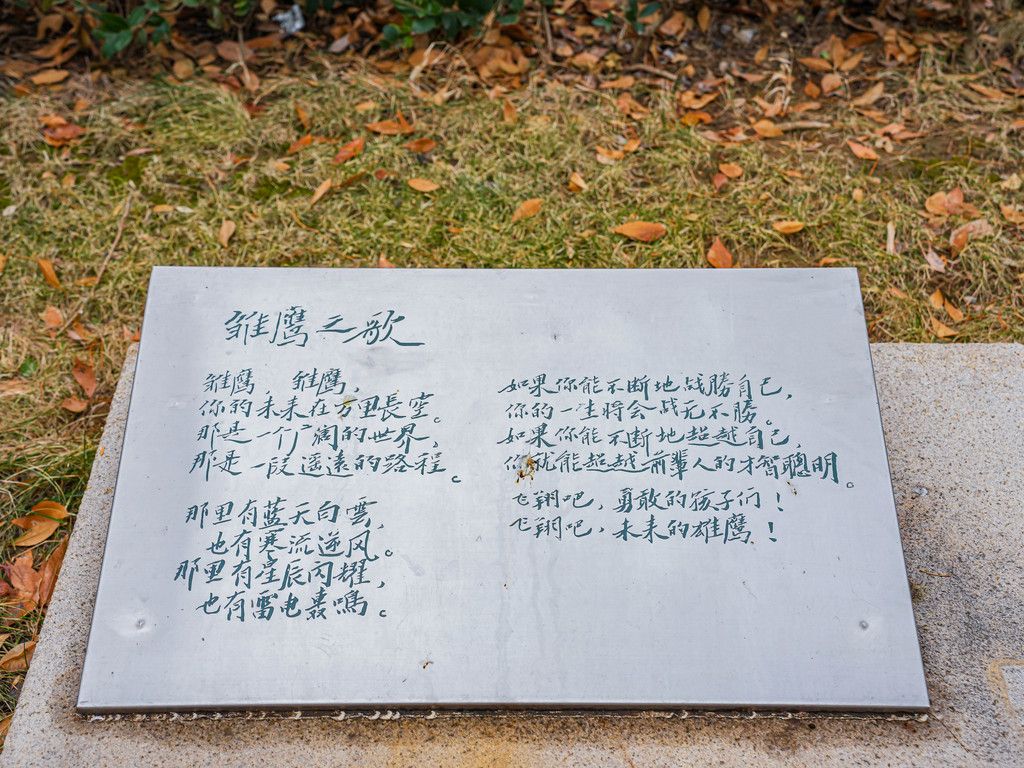 雏鹰之歌
雏鹰，雏鹰，
你的未来在万里長空。
那是一个广阔的世界，
那是一段遥遠的路程。
那里有蓝天白雲，
也有寒流逆风。
那里有星辰闪耀，
也有雷电轰鳴。
如果你能不断地战勝自己，
你的一生将会战无不勝。
如果你能不断地超越自己，
你就能超越前輩人的才智聰明。
飞翔吧，勇敢的孩子们！
飞翔吧，未来的雄鹰！